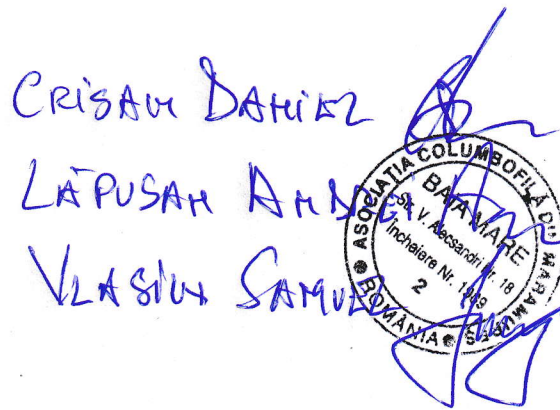 CRIŞAN DANIEL
LĂPUŞAN ANDREI
VLASIN SAMUEL
ASOCIAŢIA COLUMBOFILĂ DIN MARAMUREŞ
BAIA MARE
Str. V. Alecsandri Nr. 18
Încheiere Nr. 1949
2
ROMÂNIA